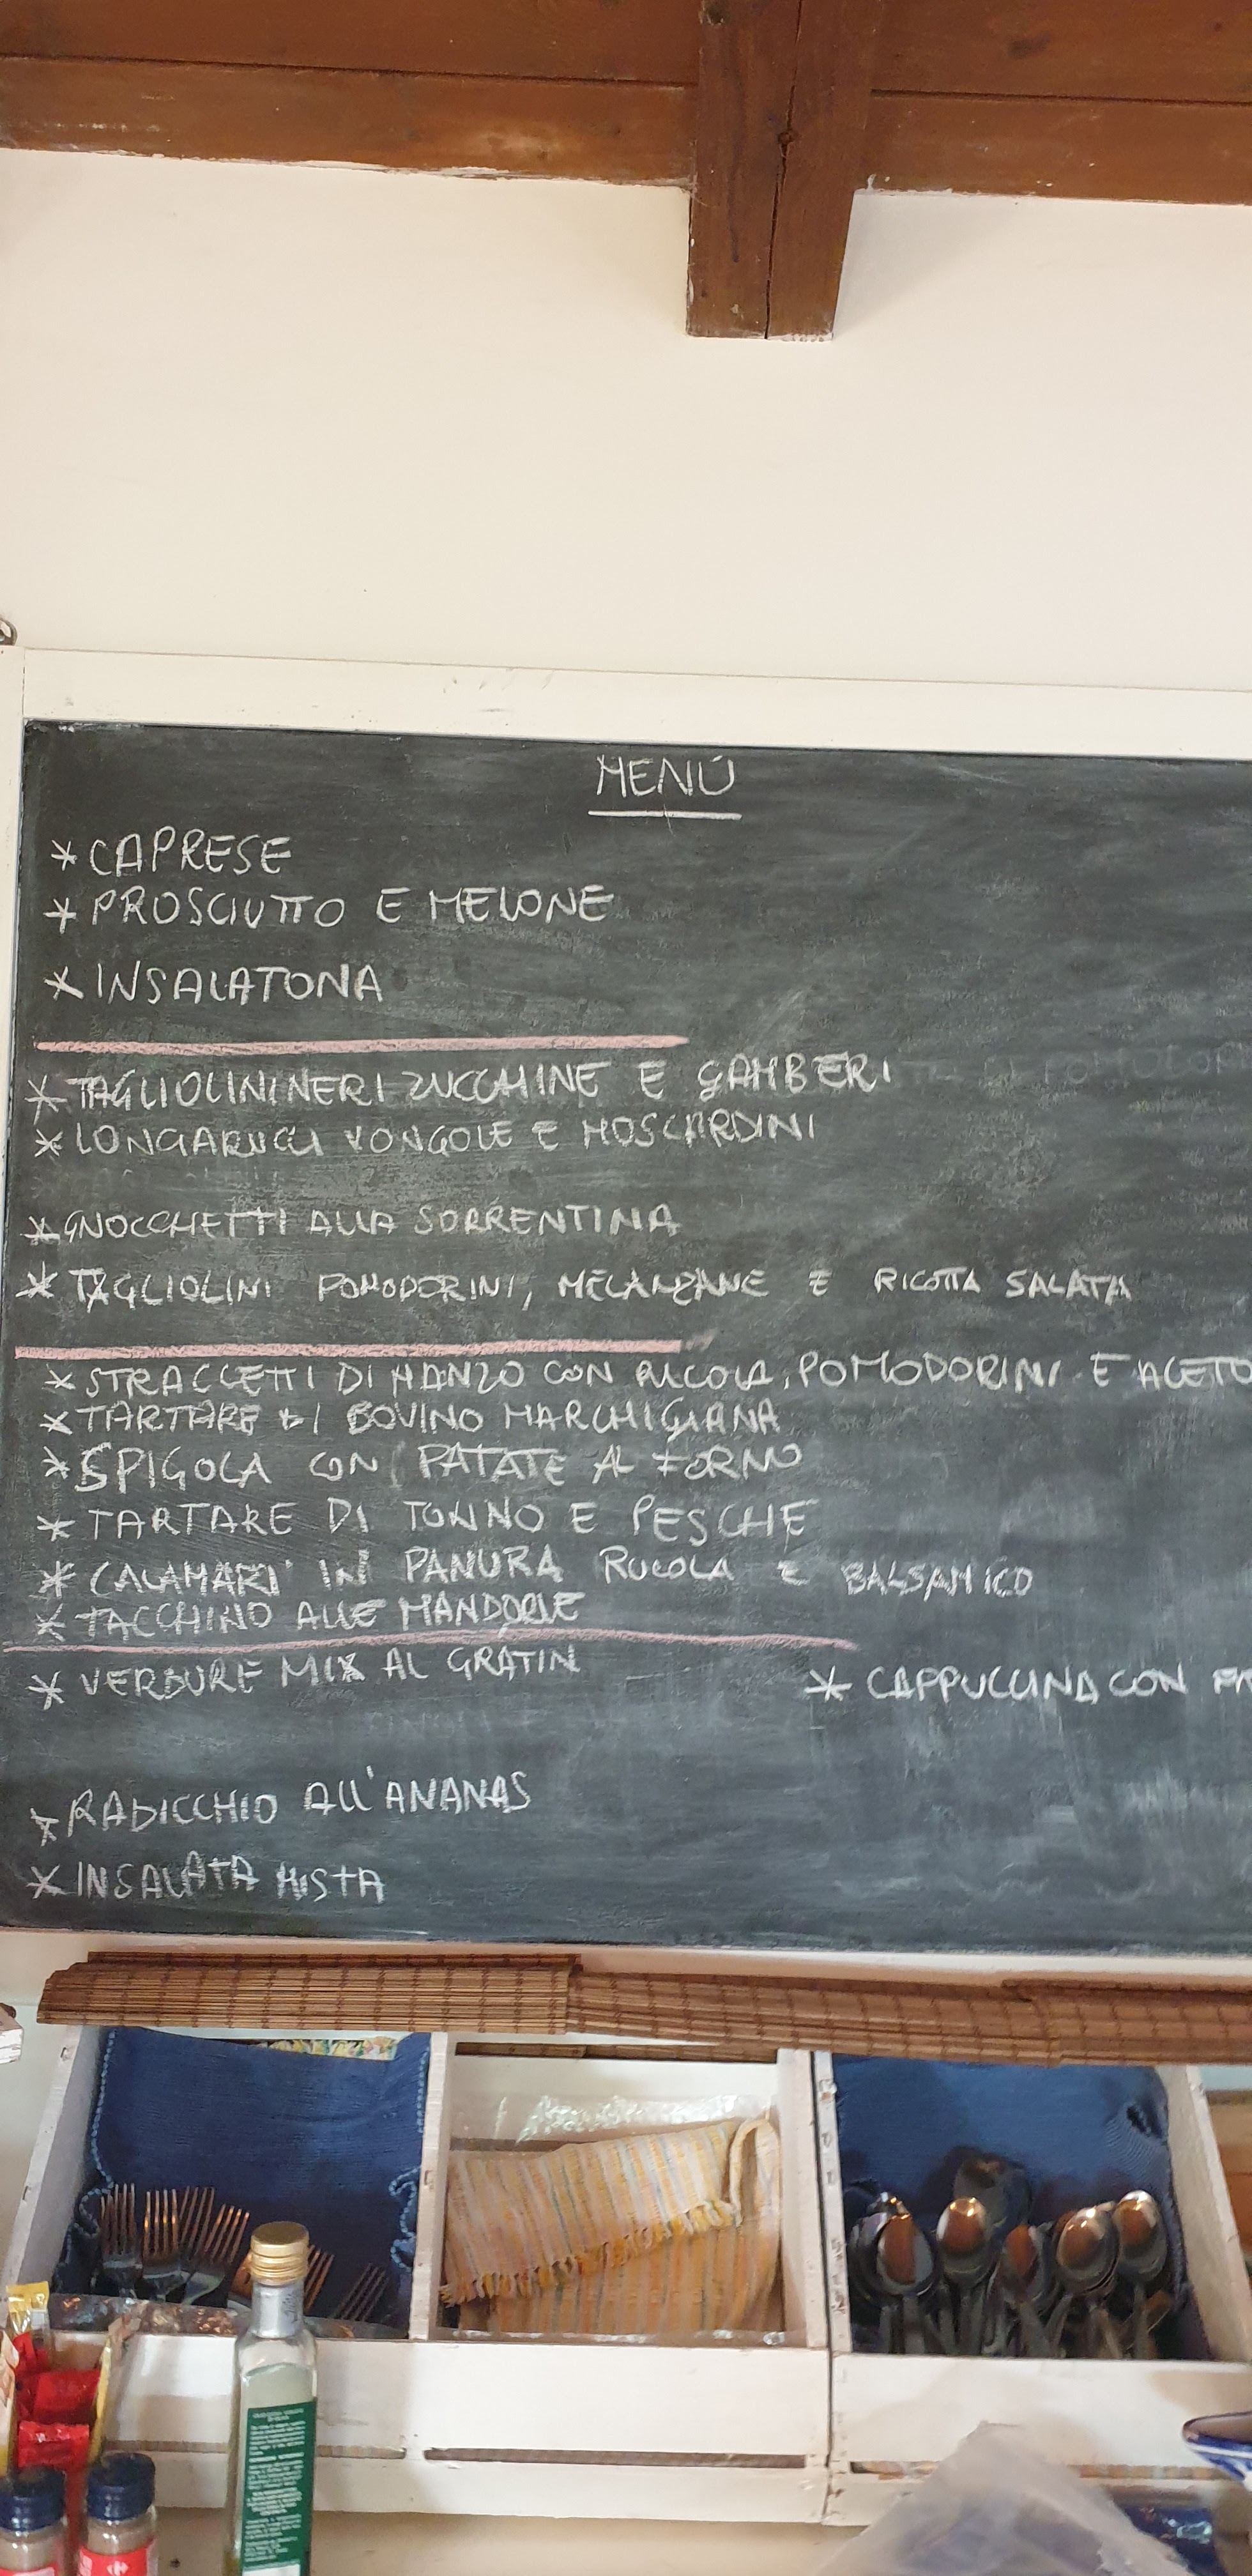 MENÚ
* CAPRESE
* PROSCIUTTO E MELONE
* INSALATONA
* TAGLIOLINI NERI ZUCCHINE E GAMBERI
* LONGARUCCI VONGOLE E MOSCARDINI
* GNOCCHETTI ALLA SORRENTINA
* TAGLIOLINI POMODORINI, MELANZANE E RICOTTA SALATA
* STRACCETTI DI MANZO CON RUCOLA, POMODORINI E ACETO
* TARTARE DI BOVINO MARCHIGIANA
* SPIGOLA CON PATATE AL FORNO
* TARTARE DI TONNO E PESCHE
* CALAMARI IN PANURA RUCOLA E BALSAMICO
* TACCHINO ALLE MANDORLE
* VERDURE MIX AL GRATIN
* CAPPUCCINA CON
* RADICCHIO ALL'ANANAS
* INSALATA MISTA